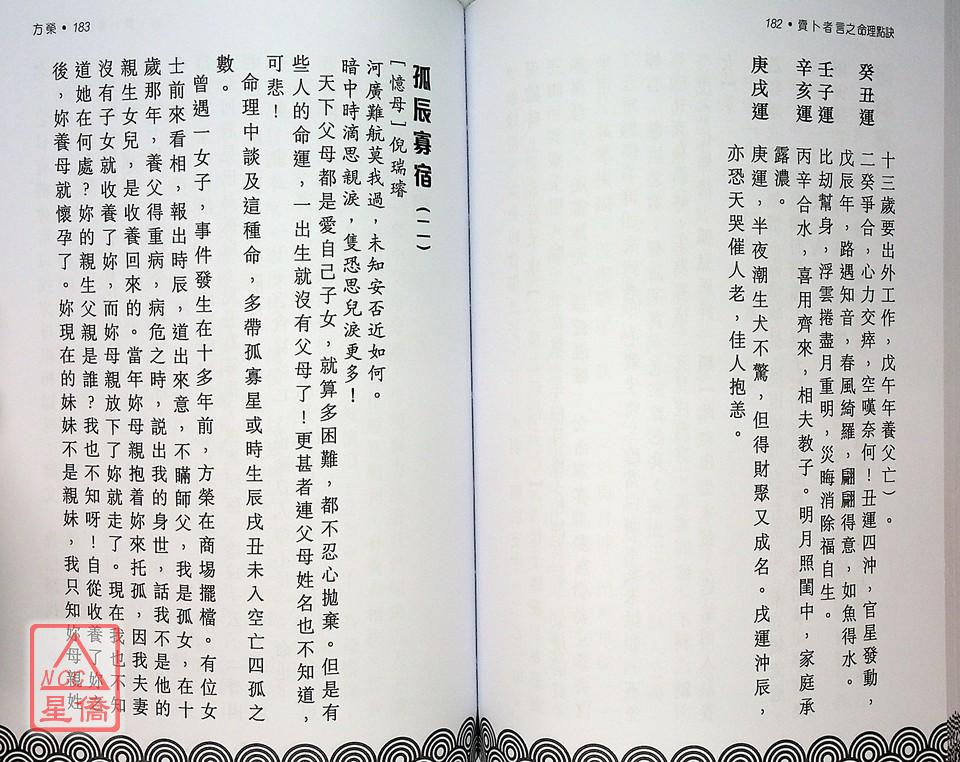 182•賣卜者言之命理點訣
十三歲要出外工作，戊午年養父亡）。
癸丑運　二癸爭合，心力交瘁，空嘆奈何！丑運四沖，官星發動，
戊辰年，路遇知音，春風綺羅，翩翩得意，如魚得水。
壬子運　比劫幫身，浮雲捲盡月重明，災晦消除福自生。
辛亥運　丙辛合水，喜用齊來，相夫教子。明月照閨中，家庭承
露濃。
庚戌運　庚運，半夜潮生犬不驚，但得財聚又成名。戌運沖辰，
亦恐天哭催人老，佳人抱恙。
方榮•183
孤辰寡宿（二）
［憶母］倪瑞璿
河廣難航莫我過，未知安否近如何。
暗中時滴思親淚，隻恐思兒淚更多！
天下父母都是愛自己子女，就算多困難，都不忍心拋棄。但是有
些人的命運，一出生就沒有父母了！更甚者連父母姓名也不知道，
可悲！
命理中談及這種命，多帶孤寡星或時生辰戌丑未入空亡四孤之
數。
曾遇一女子，事件發生在十多年前，方榮在商場擺檔。有位女
士前來看相，報出時辰，道出來意，不瞞師父，我是孤女，在十
歲那年，養父得重病，病危之時，説出我的身世，話我不是他的
親生女兒，是收養回來的。當年妳母親抱着妳來托孤，因我夫妻
沒有子女就收養了妳，而妳母親放下了妳就走了。現在我也不知
道她在何處？妳的親生父親是誰？我也不知呀！自從收養了妳之
後，妳養母就懷孕了。妳現在的妹妹不是親妹，我只知妳母親姓
NCC
星僑